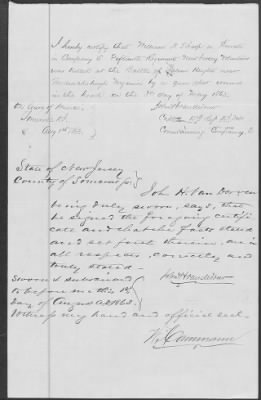 I hereby certify that William H. a Private
in Company E Regiment New Jersey Volunteers
was killed at the Battle of Heights near
Fredericksburg Virginia by a gun shot wound
in the head on the 3rd day of May 1863.
Given
Somerville N.J. Captain
Aug 1st 1863. Commanding Company E
State of New Jersey
County of Somerset
John H. Van Derveer
being duly sworn, says, that
he signed the foregoing certifi-
cate and that the facts stated
and set forth therein, are in
all respects, correctly and
truly stated.
Sworn & subscribed
to before me this 1st
day of August AD 1863.
Witness my hand and official seal.